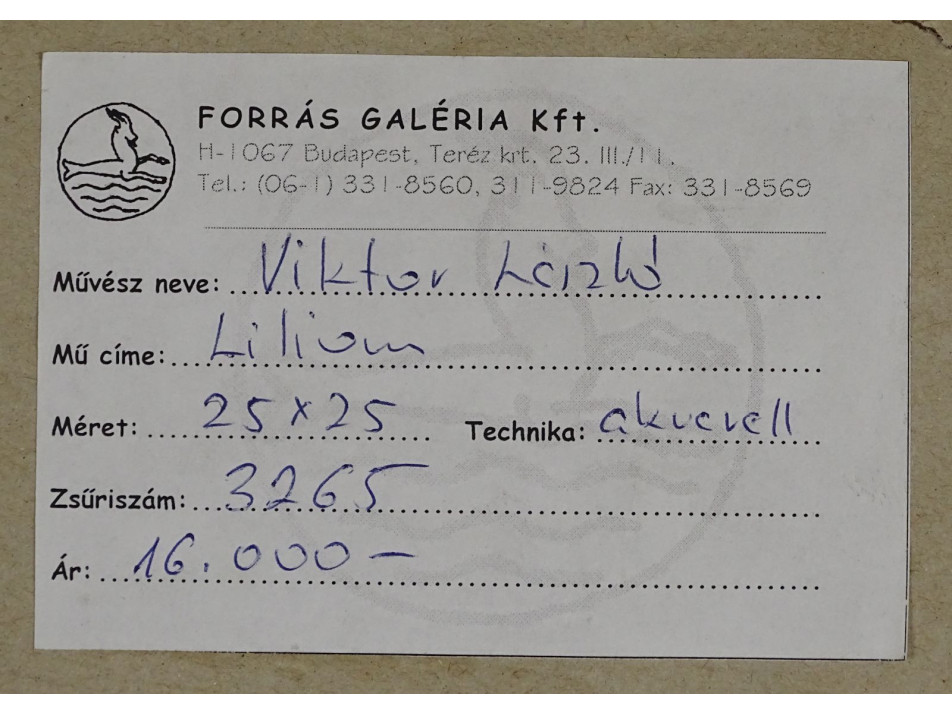 FORRÁS GALÉRIA Kft.
H-1067 Budapest, Teréz krt. 23. III./11.
Tel.: (06-1) 331-8560, 311-9824 Fax: 331-8569
Művész neve: Viktor László
Mű címe: Liliom
Méret: 25×25 Technika: akvarell
Zsűriszám: 3265
Ár: 16.000-